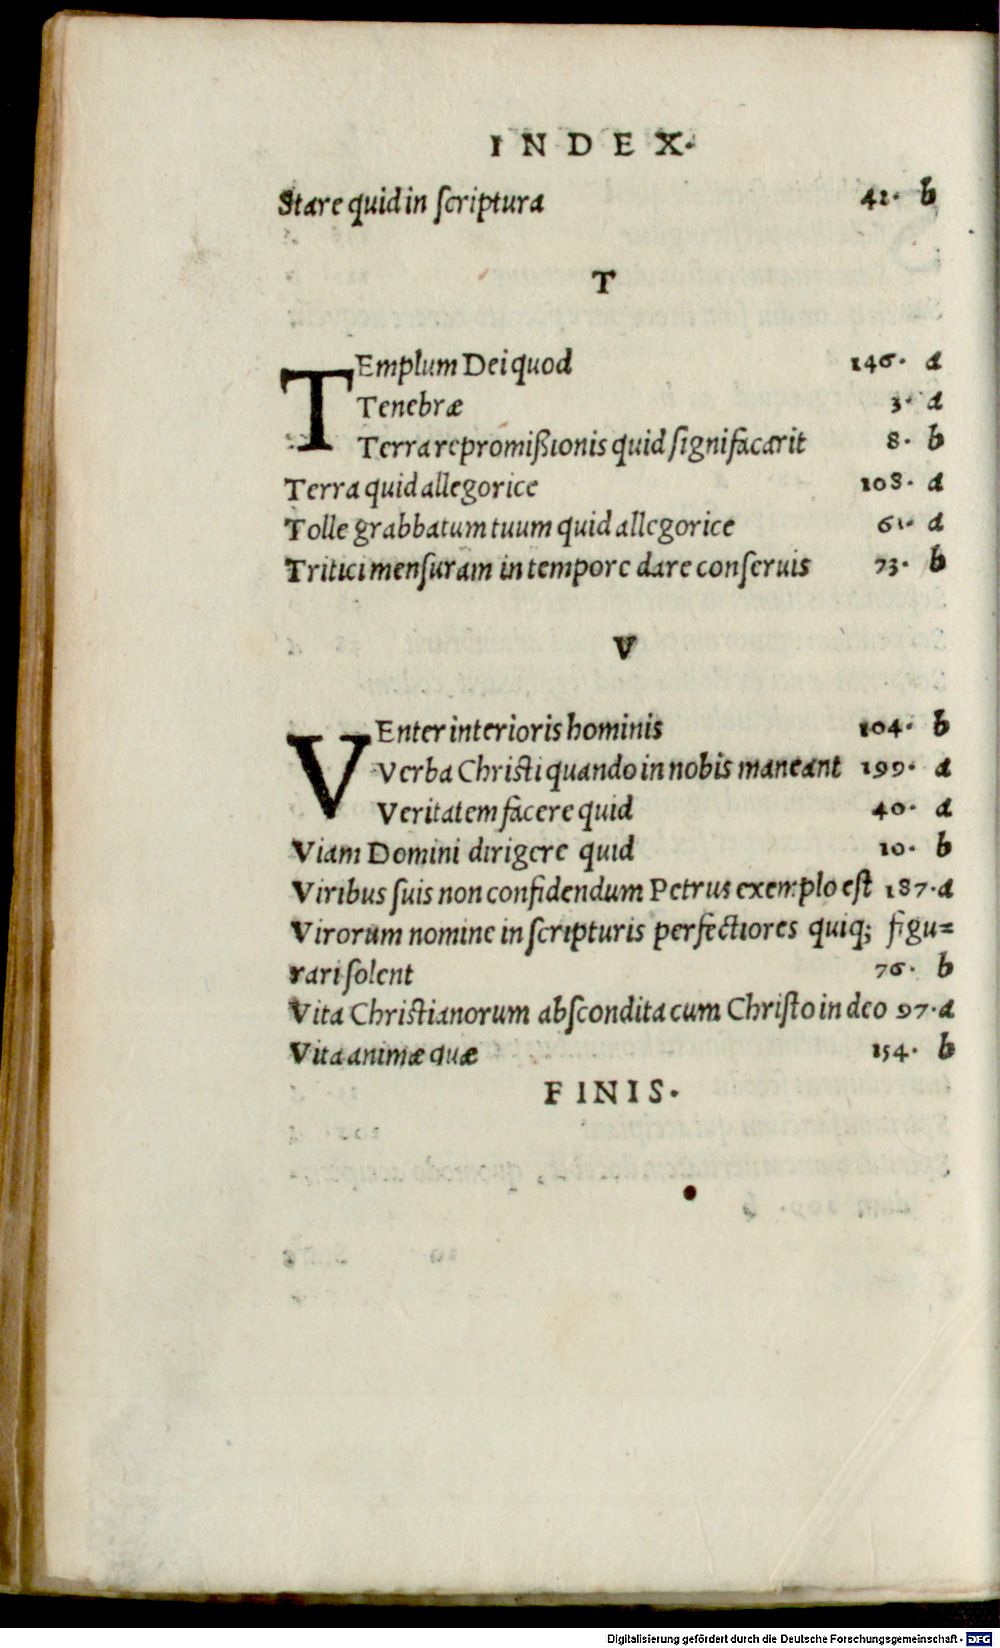 INDEX.
Stare quid in ſcriptura 42. b
T
TEmplum Dei quod 146. a
Tenebræ 3. a
Terra repromißionis quid ſignifacarit 8. b
Terra quid allegorice 108. a
Tolle grabbatum tuum quid allegorice 61. a
Tritici menſuram in tempore dare conſeruis 73. b
V
VEnter interioris hominis 104. b
Verba Chriſti quando in nobis maneant 199. a
Veritatem facere quid 40. a
Viam Domini dirigere quid 10. b
Viribus ſuis non confidendum Petrus exemplo eſt 187. a
Virorum nomine in ſcripturis perfectiores quiq; figu=
rari ſolent 76. b
Vita Chriſtianorum abſcondita cum Chriſto in deo 97. a
Vita animæ quæ 154. b
FINIS.
Digitalisierung gefördert durch die Deutsche Forschungsgemeinschaft - DFG